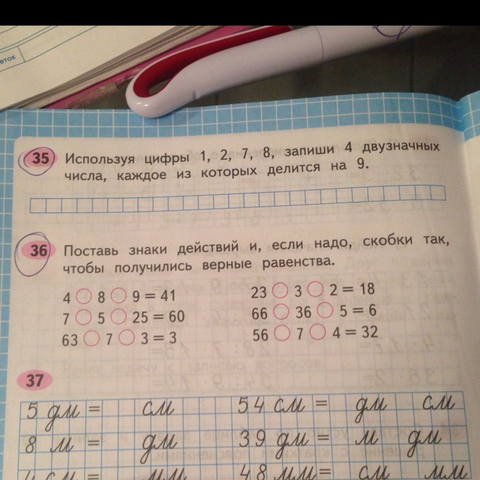 35 Используя цифры 1, 2, 7, 8, запиши 4 двузначных
числа, каждое из которых делится на 9.
36 Поставь знаки действий и, если надо, скобки так,
чтобы получились верные равенства.
4 ○ 8 ○ 9 = 41
23 ○ 3 ○ 2 = 18
7 ○ 5 ○ 25 = 60
66 ○ 36 ○ 5 = 6
63 ○ 7 ○ 3 = 3
56 ○ 7 ○ 4 = 32
37
5 дм = см
54 см = дм см
8 м = дм
39 дм = м дм
4 см = мм
48 мм = см мм